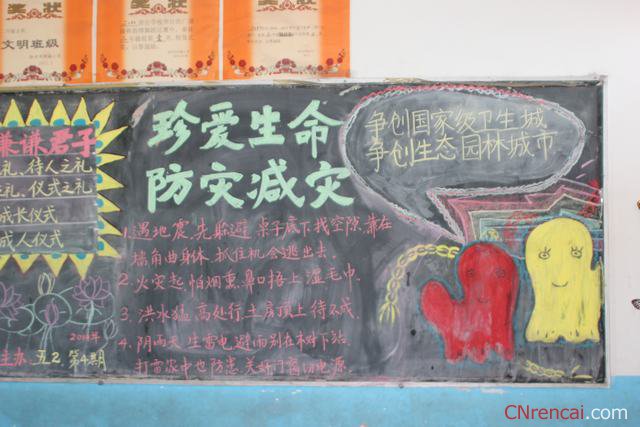 奖状
奖状
奖状
文明班级
谦谦君子
礼、待人之礼
礼、仪式之礼
成长仪式
成人仪式
珍爱生命
防灾减灾
争创国家级卫生城
争创生态园林城市
1.遇地震,先躲避,桌子底下找空隙,靠在
墙角曲身体,抓住机会逃出去.
2.火灾起,怕烟熏,鼻口捂上湿毛巾.
3.洪水猛,高处行,土房顶上待不成.
4.阴雨天,生雷电,避雨别在树下站.
打雷家中也防患,关好门窗切电源.
主办 五2 第4期
CNrencai.com